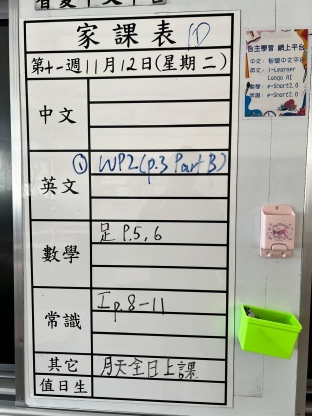 家課表 ①
第十一週11月12日(星期二)
中文
英文
① WP2(p.3 Part B)
數學
足 P.5,6
常識
工p.8-11
其它
月天全日上課
值日生
自主學習 網上平台
中文：
英文：i-Learner
Lango AI
數學：e-Smart2.0
常識：e-Smart2.0